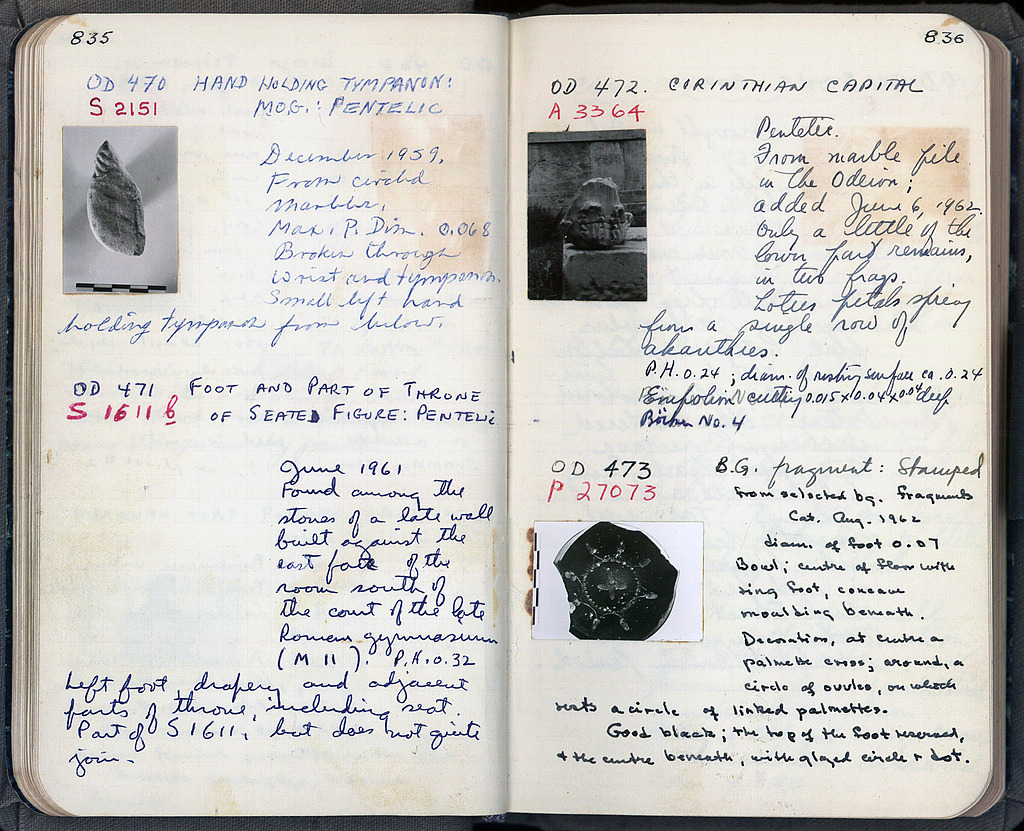 835
OD 470 HAND HOLDING TYMPANON:
S 2151 MOG.: PENTELIC
December 1959.
From circled
marbles.
Max. P. Dim. 0.068
Broken through
wrist and tympanon.
Small left hand
holding tympanon from below.
OD 471 FOOT AND PART OF THRONE
S 1611 b OF SEATED FIGURE: PENTELIC
June 1961
Found among the
stones of a late wall
built against the
east face of the
room south of
the court of the late
Roman gymnasium
(M 11). P.H. 0.32
Left foot, drapery and adjacent
parts of throne, including seat.
Part of S 1611, but does not quite
join.
836
OD 472. CORINTHIAN CAPITAL
A 3364
Pentelic.
From marble pile
in the Odeion;
added June 6, 1962.
Only a little of the
lower part remains,
in two frags.
Lotus petals spring
from a single row of
akanthus.
P.H. 0.24; diam. of resting surface ca. 0.24
Empolion cutting 0.015 x 0.04 x 0.04 deep
No. 4
OD 473 B.G. fragment: Stamped
P 27073
From selected bg. fragments
Cat. Aug. 1962
diam. of foot 0.07
Bowl; centre of floor with
ring foot, concave
moulding beneath.
Decoration, at centre a
palmette cross; around, a
circle of ovules, on which
rests a circle of linked palmettes.
Good black; the top of the foot reserved,
& the centre beneath, with glazed circle & dot.